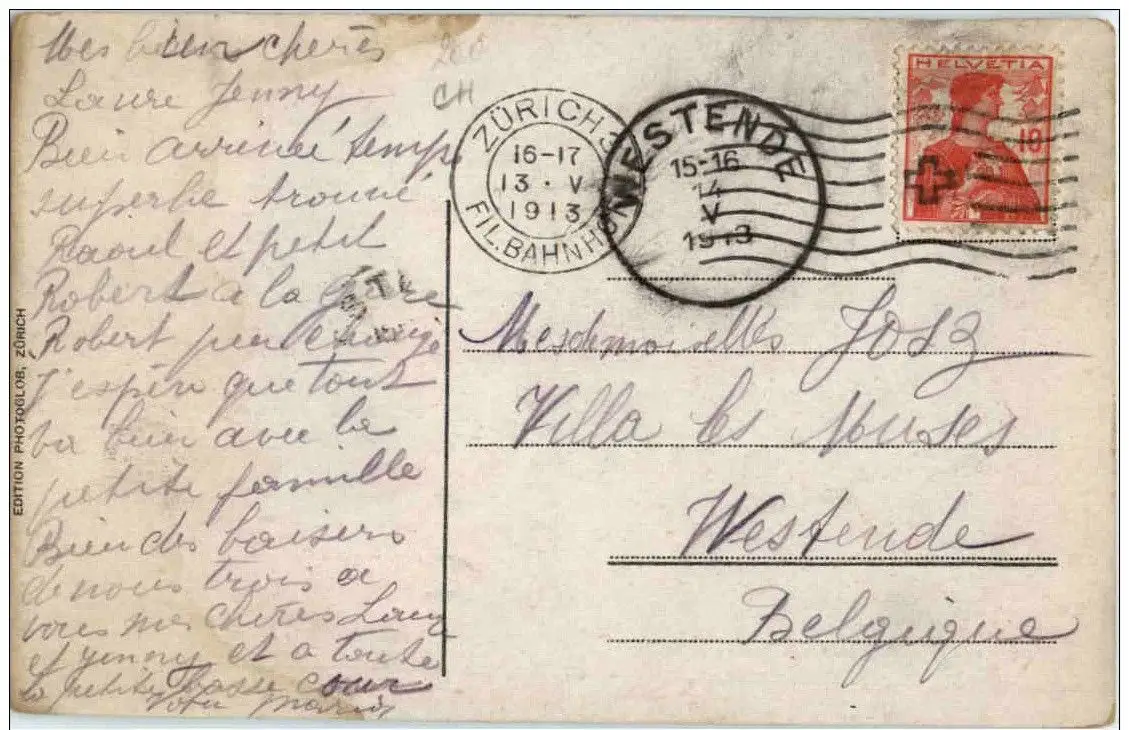 Mes bien cheres
Laure Jenny
Bien arrivé temps
superbe trouvé
Raoul et petit
Robert a la gare
Robert peu changé
J'espère que tout
va bien avec la
petite famille
Bien des baisers
de nous trois a
vous mes chères Laure
et Jenny et a toute
la petite basse cour
Votre
EDITION PHOTOGLOB, ZÜRICH
200
CH
ZÜRICH
16-17
13·V
1913
FIL. BAHNHOF
WESTENDE
15-16
14
V
1913
HELVETIA
10
Mesdemoiselles
Villa les Muses
Westende
Belgique